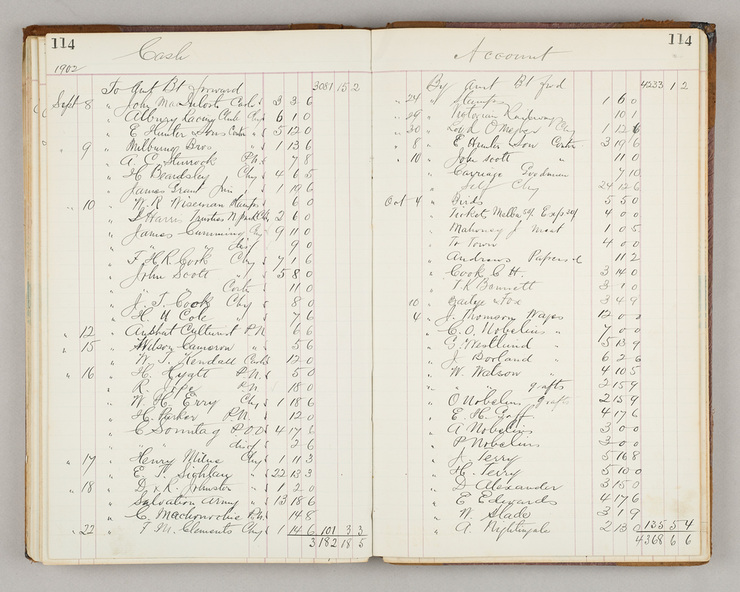 114
Cash
1902
To Amt Bt forward 3081 15 2
Sept 8 " John MacIntosh Cash 3 3 6
" Albury Racing Club Chq 6 1 0
" E Hunter & Sons 5 12 0
" 9 " Milburns Bros " 1 13 6
" A. C. Sturrock P.N. 7 8
" H Beardsley Chq 4 6 5
" James Grant Jun " 1 19 6
" 10 " W. R. Wiseman Stamps 6 0
" S Harris 2 6 0
" James Cumming Chq 9 11 0
" " " dis 9 0
" F. H. R. Cook Chq 7 1 6
" John Scott " 5 8 0
" " 11 0
" J. T. Cook Chq 8 0
" H. U Cole " 7 6
" 12 " Culturist P.N. 6 6
" 15 " Wilson Cameron " 5 6
" W. J. Kendall 12 0
" 16 " H. Hyatt P.N. 5 0
" R. P.N. 18 0
" W H Erry Chq 1 18 6
" H. Parker P.N. 12 0
" C Sonntag P.O.O 4 17 6
" " disct 2 6
" 17 " Henry Milne Chq 1 11 3
" E. T. " 22 13 3
" 18 " D. & R. Johnston " 1 2 0
" Salvation Army " 13 18 6
" C. Machonochie P.N. 14 8
" 22 " F. M. Clements Chq 1 14 6 101 3 3
3182 18 5
114
Account
By Amt Bt fwd 4233 1 2
" 24 " Stamps 1 6 0
" 29 " Victorian Railways 10 1
" 30 " Chq 1 12 6
" 8 " E. Hunter & Son 3 19 6
" 10 " John Scott " 11 0
" Carriage 7 10
" Self Chq 24 12 6
Oct 4 " Birds 5 5 0
" Tickets 4 0 0
" Mahoney J Meat 1 0 5
" To Town 4 0 0
" Andrews Papers 11 2
" Cook C. H. 3 14 0
" T. R Bennett 3 1 0
10 " & Fox 3 4 9
4 " J. Thomson Wages 12 0 0
" C. O. Nobelius " 7 0 0
" G Westlund " 5 13 9
" J. Borland " 6 2 6
" W. Watson " 4 10 5
" " " grafts 2 15 9
" O Nobelius grafts 2 15 9
" E. H. Goff 4 17 6
" A Nobelius 3 0 0
" P Nobelius 3 0 0
" J. Terry 5 16 8
" H. Terry 5 10 0
" D Alexander 3 15 0
" E Edwards 4 17 6
" W. Slade 3 1 9
" A. Nightingale 2 13 0 135 5 4
4368 6 6